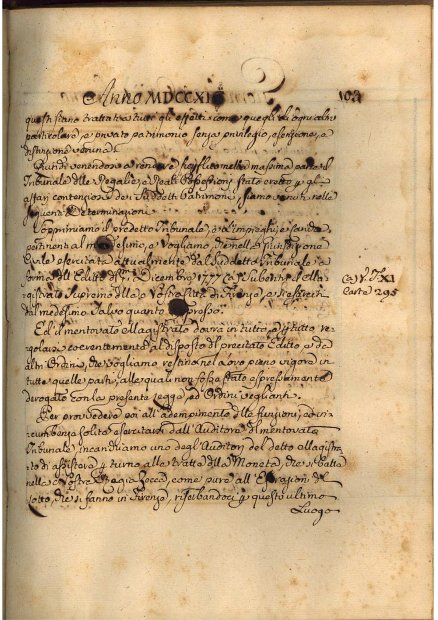 Anno MDCCXI 103
questi siano trattati in tutti gli effetti come quegli di ogni altro
particolare, e privato patrimonio senza privilegio, esenzione, e
distinzione veruna.
Quindi venendo a rendere nella massima parte il
Tribunale delle Regalie, e Reali Possessioni, stato eretto per gli
affari contenziosi dei suddetti Patrimoni, siamo venuti nelle
seguenti Determinazioni
Sopprimiamo il predetto Tribunale, e gl'impieghi, e
pertinenti al medesimo, e Vogliamo, che nella Giurisdizione
Civile esercitata attualmente dal suddetto Tribunale a
forma dell'Editto de' Dicembre 1777 Subentri il Ma=
gistrato Supremo della Nostra Città di Firenze, e
dal medesimo Salvo quanto
Ed il mentovato Magistrato dovrà in tutto, e per tutto re=
golarsi coerentemente al disposto del precitato Editto, e de=
gl'altri Ordini, che vogliamo restino nel loro pieno vigore in
tutte quelle parti, alle quali non fosse stato espressamente
derogato con la presente Legge, ed Ordini veglianti.
Per provvedere poi all'adempimento delle funzioni, ed in=
cumbenze solite esercitarsi dall'Auditore del mentovato
Tribunale, incarichiamo uno degli Auditori del detto Magistra=
to di assistere per turno alla tratta della Moneta, che si batte
nella Nostra Regia Zecca, come pure all'Estrazioni del
Lotto, che si fanno in Firenze, riserbandoci per questo ultimo
Luogo
XI
Carte 295